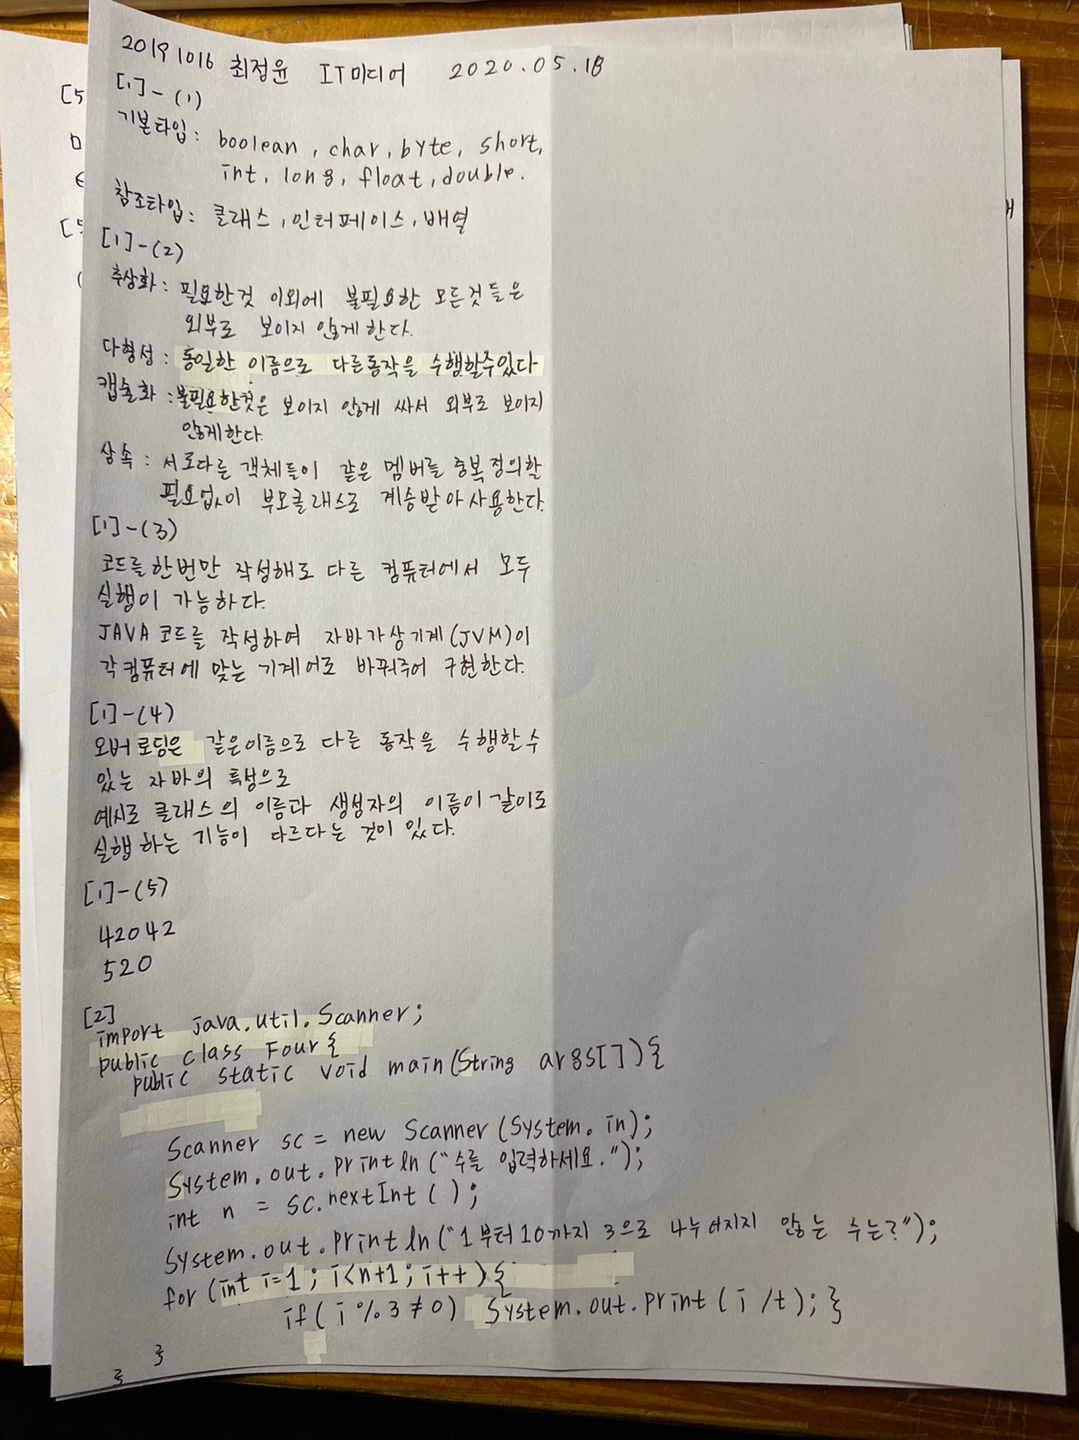 20191016 최정윤 IT미디어 2020.05.18
[1]-(1)
기본타입: boolean, char, byte, short,
int, long, float, double.
참조타입: 클래스, 인터페이스, 배열
[1]-(2)
추상화: 필요한것 이외에 불필요한 모든것들은
외부로 보이지 않게한다.
다형성: 동일한 이름으로 다른동작을 수행할수있다
캡슐화: 불필요한것은 보이지 않게 싸서 외부로 보이지
않게한다.
상속: 서로다른 객체들이 같은 멤버를 중복정의할
필요없이 부모클래스로 계승받아사용한다.
[1]-(3)
코드를한번만 작성해도 다른 컴퓨터에서 모두
실행이 가능하다.
JAVA코드를 작성하여 자바가상기계(JVM)이
각컴퓨터에 맞는 기계어로 바꿔주어 구현한다.
[1]-(4)
오버로딩은 같은이름으로 다른 동작을 수행할수
있는 자바의 특성으로
예시로 클래스의 이름과 생성자의 이름이 같이도
실행하는 기능이 다르다는 것이 있다.
[1]-(5)
42042
520
[2]
import java.util.Scanner;
public class Four{
public static void main(String args[]){
Scanner sc = new Scanner(System.in);
System.out.println("수를 입력하세요.");
int n = sc.nextInt();
System.out.println("1부터10까지 3으로 나누어지지 않는 수는?");
for (int i=1; i<n+1; i++){
if(i%3≠0) System.out.print(i/t);}
}
}
[5
[5